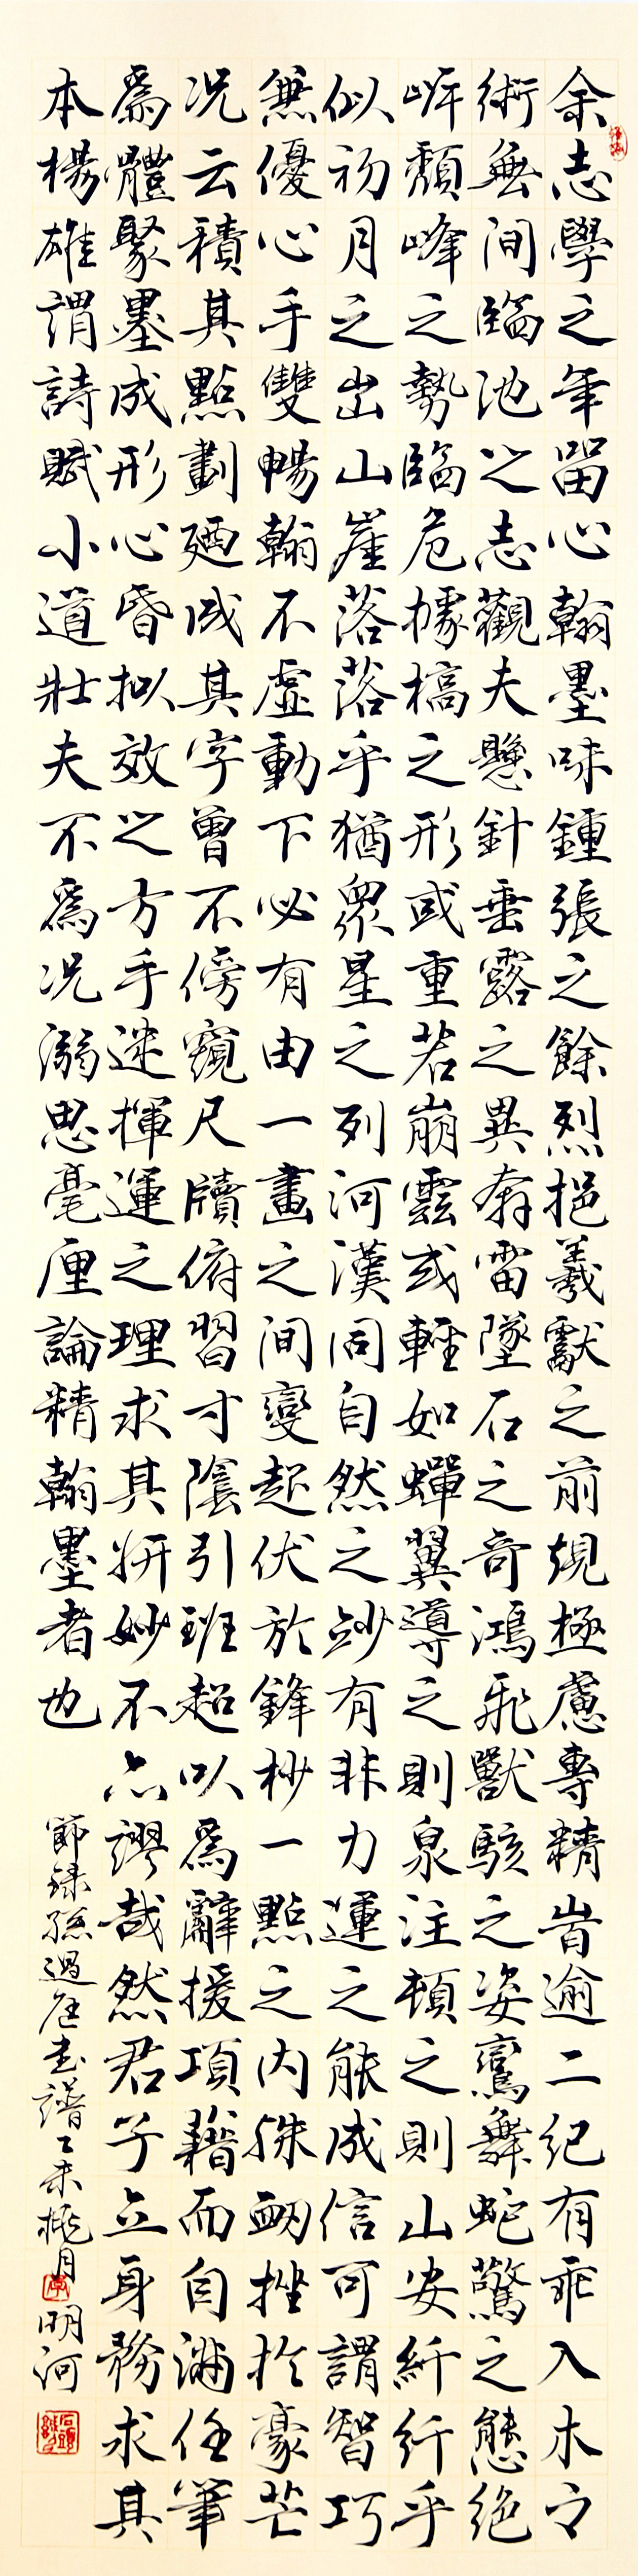 余志學之年留心翰墨味鍾張之餘烈挹羲獻之前規極慮專精旹逾二紀有乖入木之
術無間臨池之志觀夫懸針垂露之異奔雷墜石之奇鴻飛獸駭之姿鸞舞蛇驚之態絕
岸頹峰之勢臨危據槁之形或重若崩雲或輕如蟬翼導之則泉注頓之則山安纖纖乎
似初月之出山崖落落乎猶衆星之列河漢同自然之妙有非力運之能成信可謂智巧
兼優心手雙暢翰不虛動下必有由一畫之間變起伏於鋒杪一點之内殊衂挫於豪芒
况云積其點劃廼成其字曾不傍窺尺牘俯習寸陰引班超以爲辭援項籍而自滿任筆
爲體聚墨成形心昏拟效之方手迷揮運之理求其妍妙不亦謬哉然君子立身務求其
本楊雄謂詩賦小道壯夫不爲况溺思毫厘論精翰墨者也
節錄孫過庭書譜乙未桃月明河